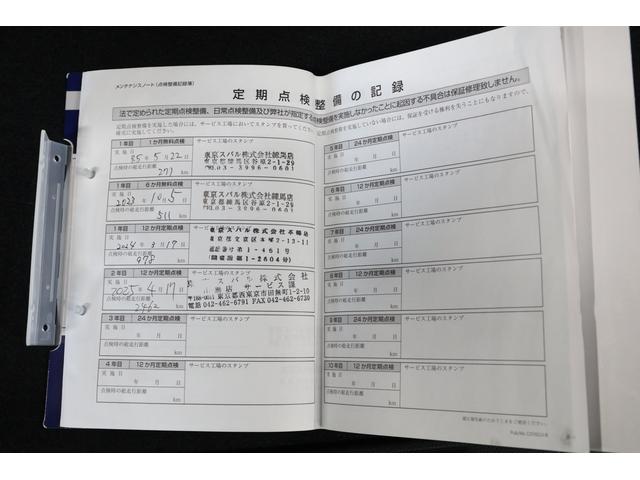 メンテナンスノート(点検整備記録簿)
定期点検整備の記録
法で定められた定期点検整備、日常点検整備及び弊社が指定する点検整備を実施しなかったことに起因する不具合は保証修理致しません。
1年目 1か月無料点検
サービス工場のスタンプ
実施日
35年5月22日
東京スバル株式会社練馬店
東京都練馬区谷原2-1-29
TEL 03-3996-0601
点検時の総走行距離
271 km
1年目 6か月無料点検
サービス工場のスタンプ
実施日
2023年10月5日
東京スバル株式会社練馬店
東京都練馬区谷原2-1-29
TEL 03-3996-0601
点検時の総走行距離
511 km
1年目 12か月定期点検
サービス工場のスタンプ
実施日
東京スバル株式会社
認証番号 第1-461号
点検時の総走行距離
978 km
2年目 12か月定期点検
サービス工場のスタンプ
実施日
2025年4月17日
スバル株式会社
サービス課
東京都西東京市田無町1-2-10
電話 042-462-6791 FAX 042-462-6730
点検時の総走行距離
2462 km
3年目 24か月定期点検
サービス工場のスタンプ
実施日
年 月 日
点検時の総走行距離
km
4年目 12か月定期点検
サービス工場のスタンプ
実施日
年 月 日
点検時の総走行距離
km
5年目 24か月定期点検
サービス工場のスタンプ
実施日
年 月 日
点検時の総走行距離
km
6年目 12か月定期点検
サービス工場のスタンプ
実施日
年 月 日
点検時の総走行距離
km
7年目 24か月定期点検
サービス工場のスタンプ
実施日
年 月 日
点検時の総走行距離
km
8年目 12か月定期点検
サービス工場のスタンプ
実施日
年 月 日
点検時の総走行距離
km
9年目 24か月定期点検
サービス工場のスタンプ
実施日
年 月 日
点検時の総走行距離
km
10年目 12か月定期点検
サービス工場のスタンプ
実施日
年 月 日
点検時の総走行距離
km